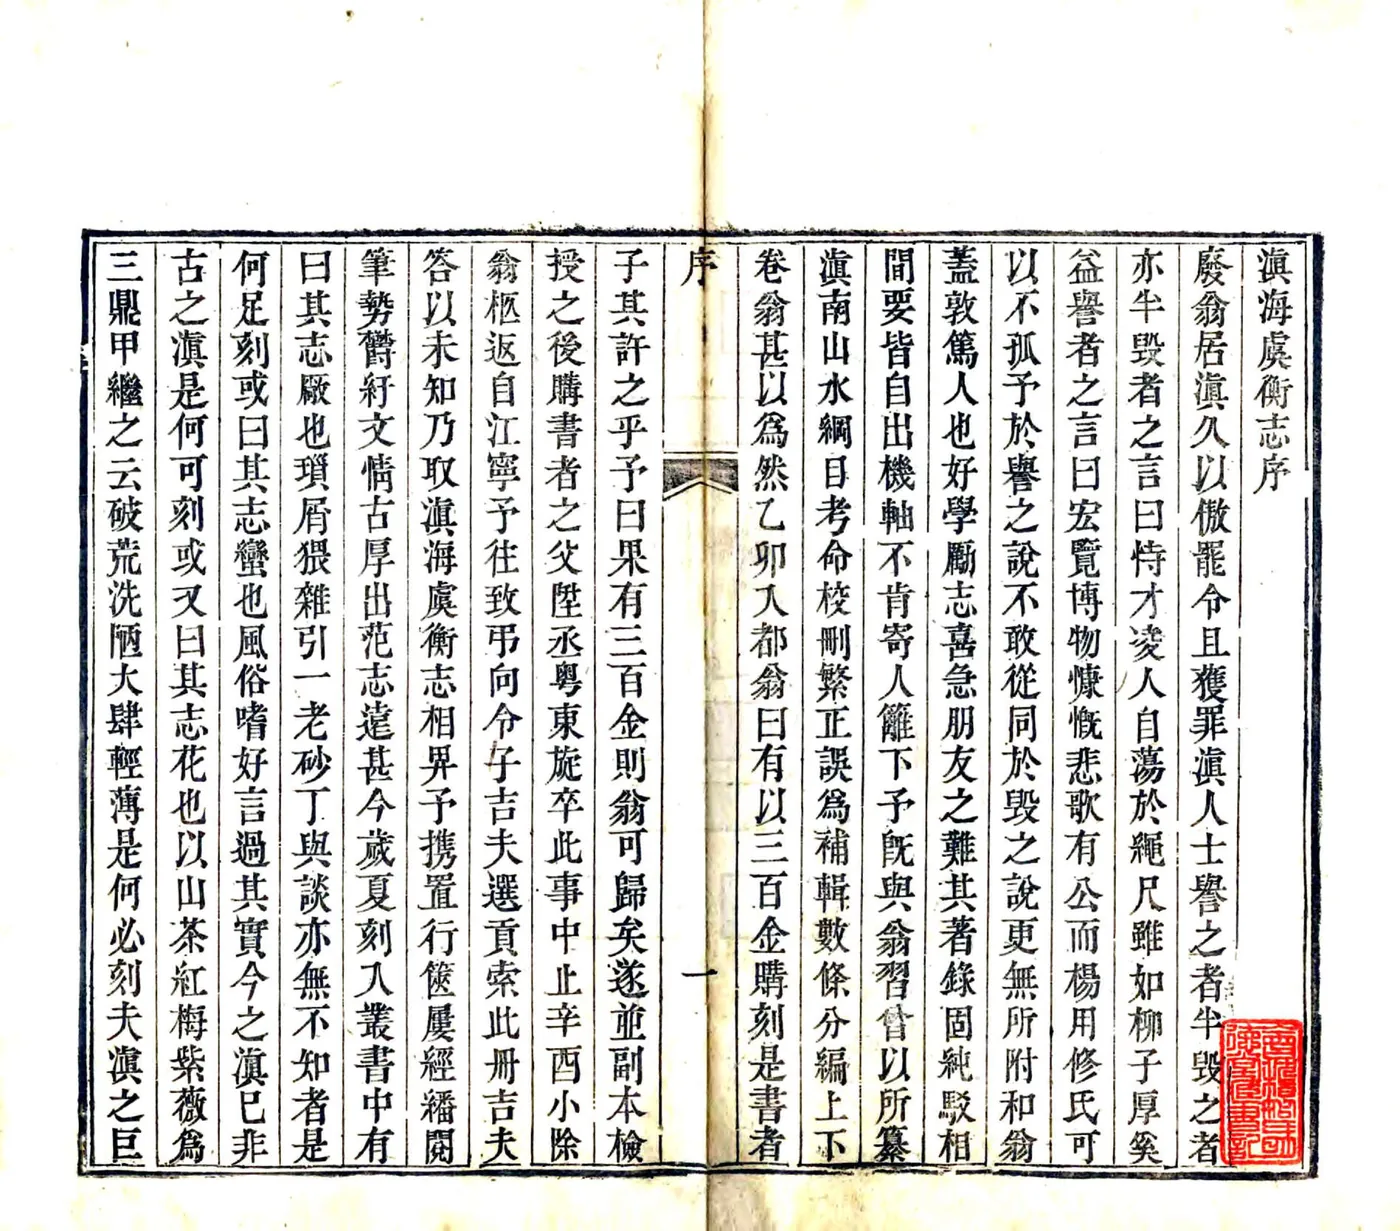 滇海虞衡志序
廢翁居滇久以傲罷令且獲罪滇人士譽之者半毀之者
亦半毀者之言曰恃才凌人自蕩於繩尺雖如柳子厚奚
益譽者之言曰宏覽博物慷慨悲歌有公而楊用修氏可
以不孤予於譽之說不敢從同於毀之說更無所附和翁
蓋敦篤人也好學勵志喜急朋友之難其著錄固純駁相
間要皆自出機軸不肯寄人籬下予旣與翁習嘗以所纂
滇南山水綱目考命校刪繁正誤爲補輯數條分編上下
卷翁甚以爲然乙卯入都翁曰有以三百金購刻是書者
序
一
子其許之乎予曰果有三百金則翁可歸矣遂並副本檢
授之後購書者之父陞丞粵東旋卒此事中止辛酉小除
翁柩返自江寧予往致弔向令子吉夫選貢索此冊吉夫
答以未知乃取滇海虞衡志相畀予携置行篋屢經繙閱
筆勢鬱紆文情古厚出范志遠甚今歲夏刻入叢書中有
曰其志厰也瑣屑猥雜引一老砂丁與談亦無不知者是
何足刻或曰其志蠻也風俗嗜好言過其實今之滇已非
古之滇是何可刻或又曰其志花也以山茶紅梅紫薇爲
三鼎甲繼之云破荒洗陋大肆輕薄是何必刻夫滇之巨